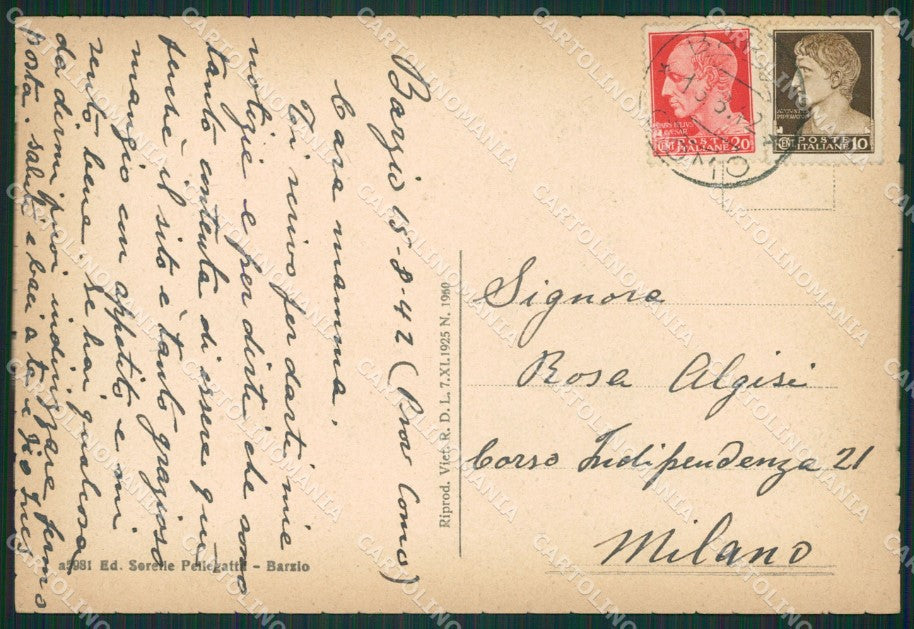 Barzio 15-8-42 (Prov Como)
Cara mamma,
Ti scrivo per darti mie
notizie e per dirti che sono
tanto contenta di essere qui
perchè il sito è tanto grazioso
mangio con appetito e mi
sento bene. Se hai qualcosa
da dirmi puoi indirizzare fermo
Posta. Saluti e baci a te e zio Ines
a5981 Ed. Sorelle Pellegatta - Barzio
Riprod. Viet. R. D. L. 7.XI.1925 N. 1960
CENT POSTE ITALIANE 20
CENT POSTE ITALIANE 10
Signora
Rosa Algisi
Corso Indipendenza 21
Milano
CARTOLINOMANIA